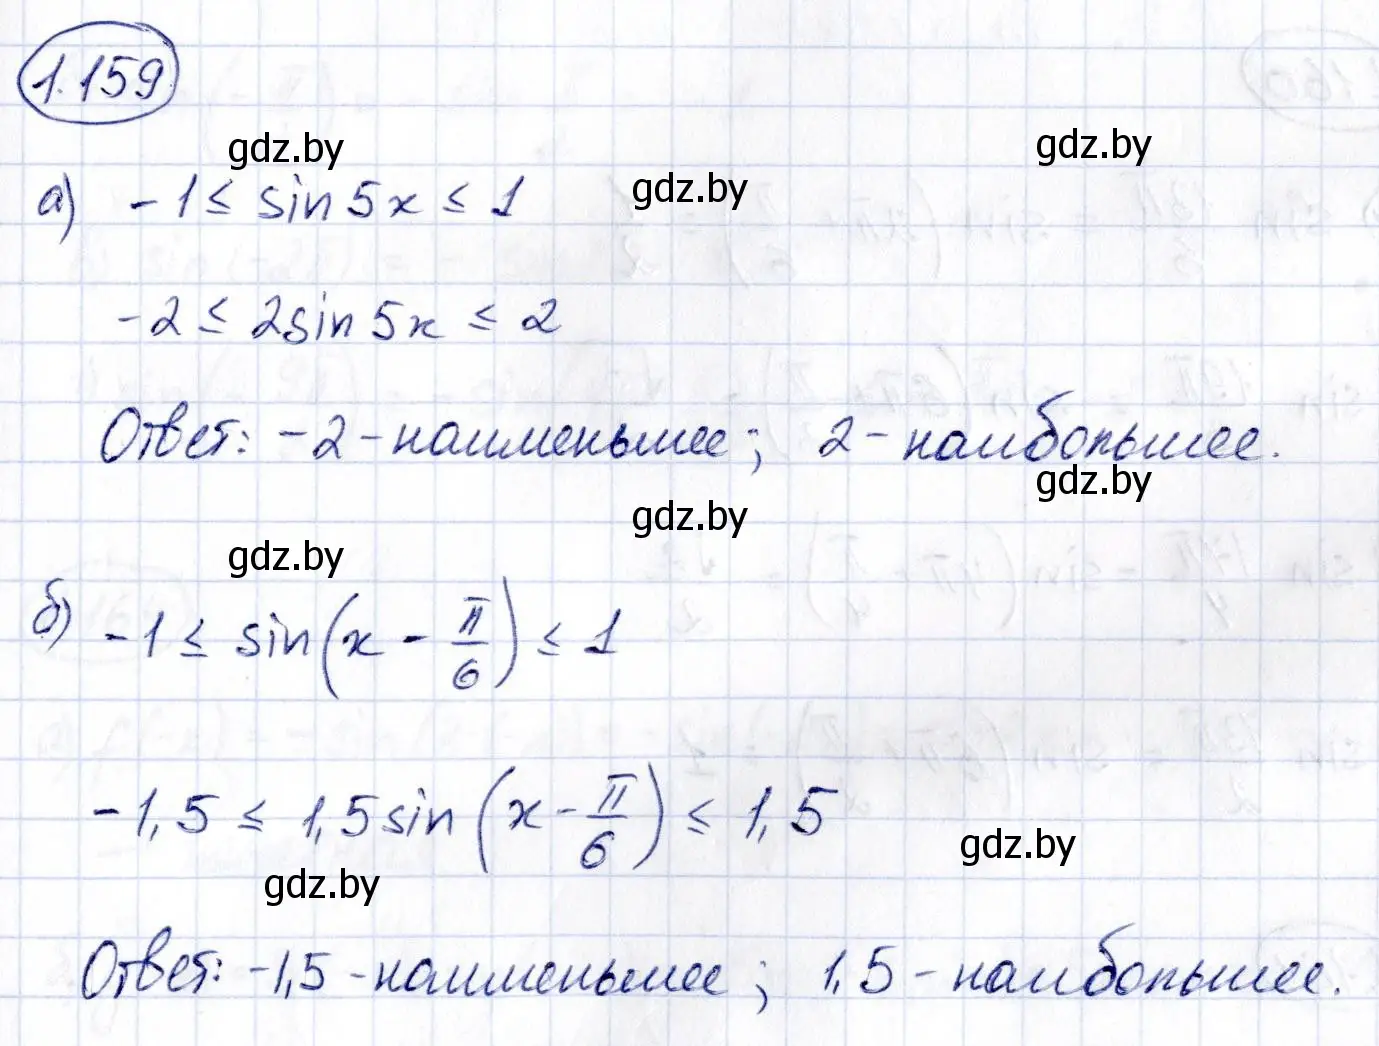 1.159
gdz.by
gdz.by
gdz.by
а) -1 ≤ sin 5x ≤ 1
-2 ≤ 2sin 5x ≤ 2
Ответ: -2 - наименьшее; 2 - наибольшее.
gdz.by
gdz.by
gdz.by
б) -1 ≤ sin(x - π/6) ≤ 1
-1,5 ≤ 1,5 sin(x - π/6) ≤ 1,5
gdz.by
gdz.by
Ответ: -1,5 - наименьшее; 1,5 - наибольшее.